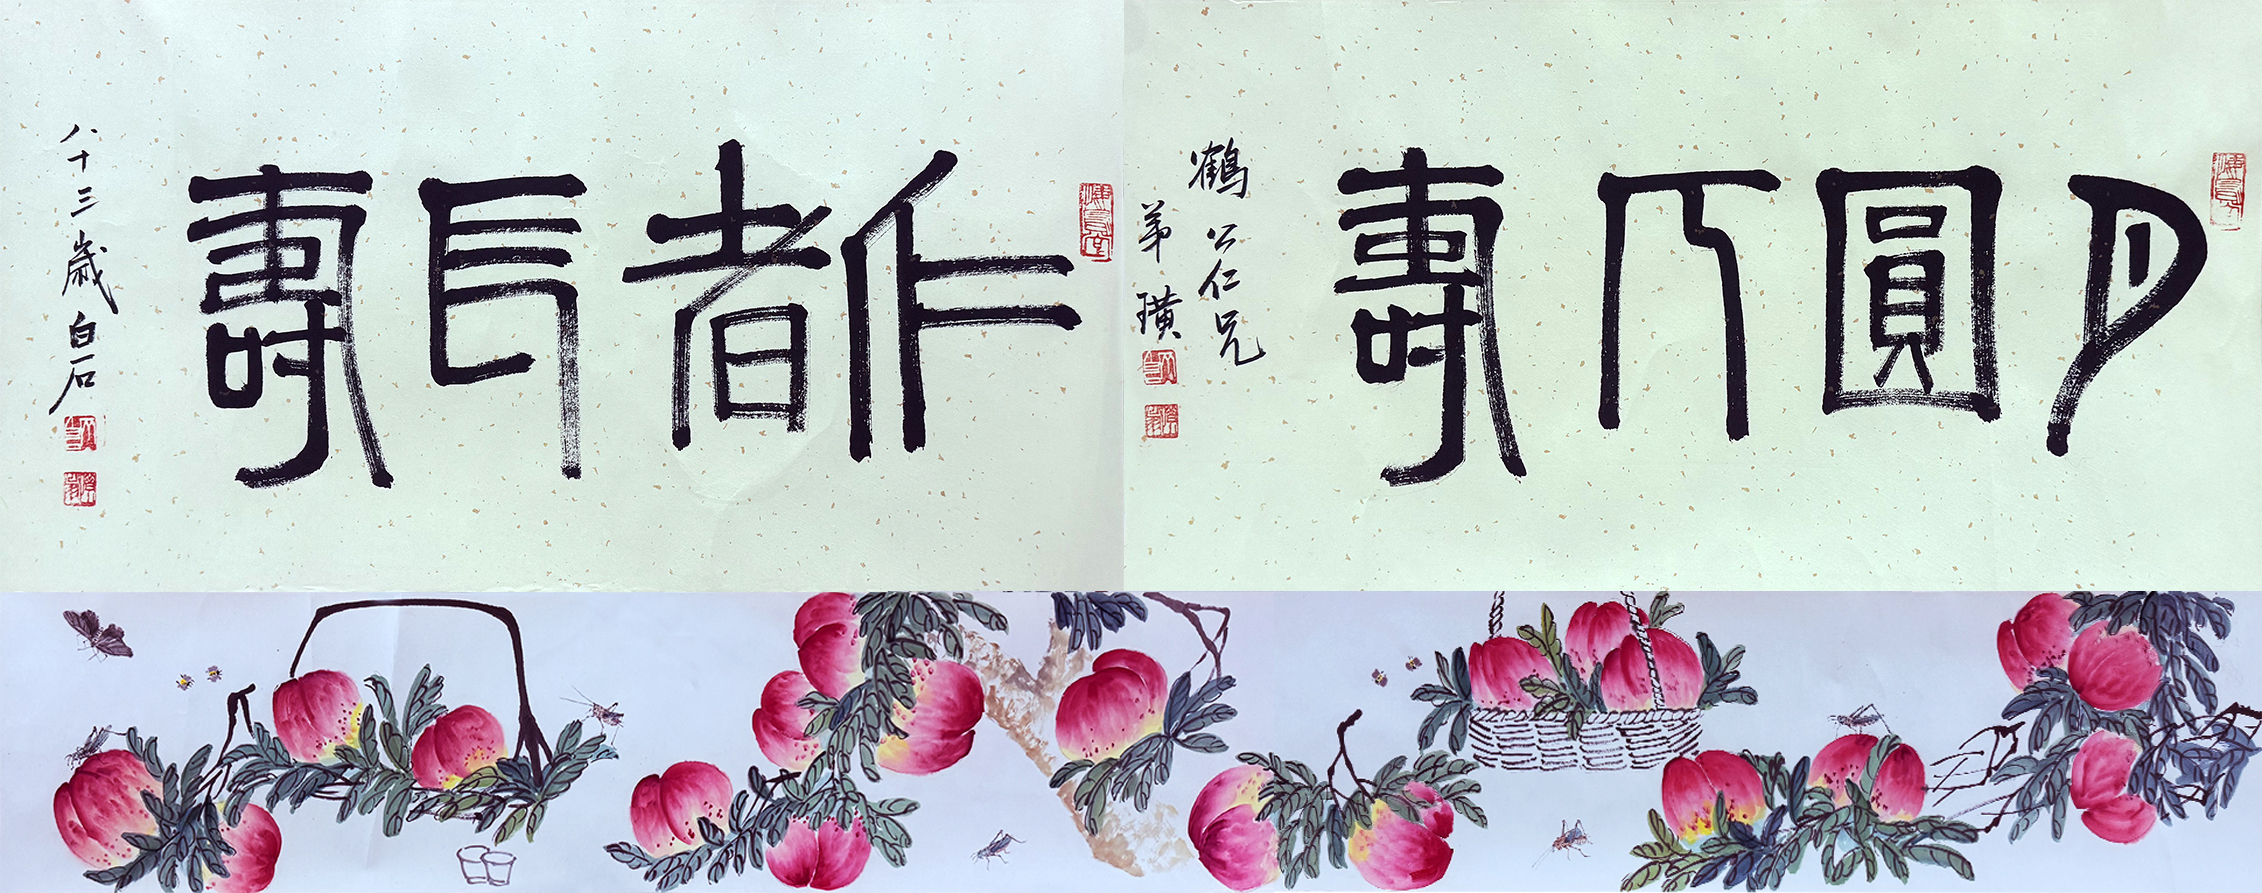 月圓人壽
鶴公仁兄
弟璜
仁者長壽
八十三歲白石